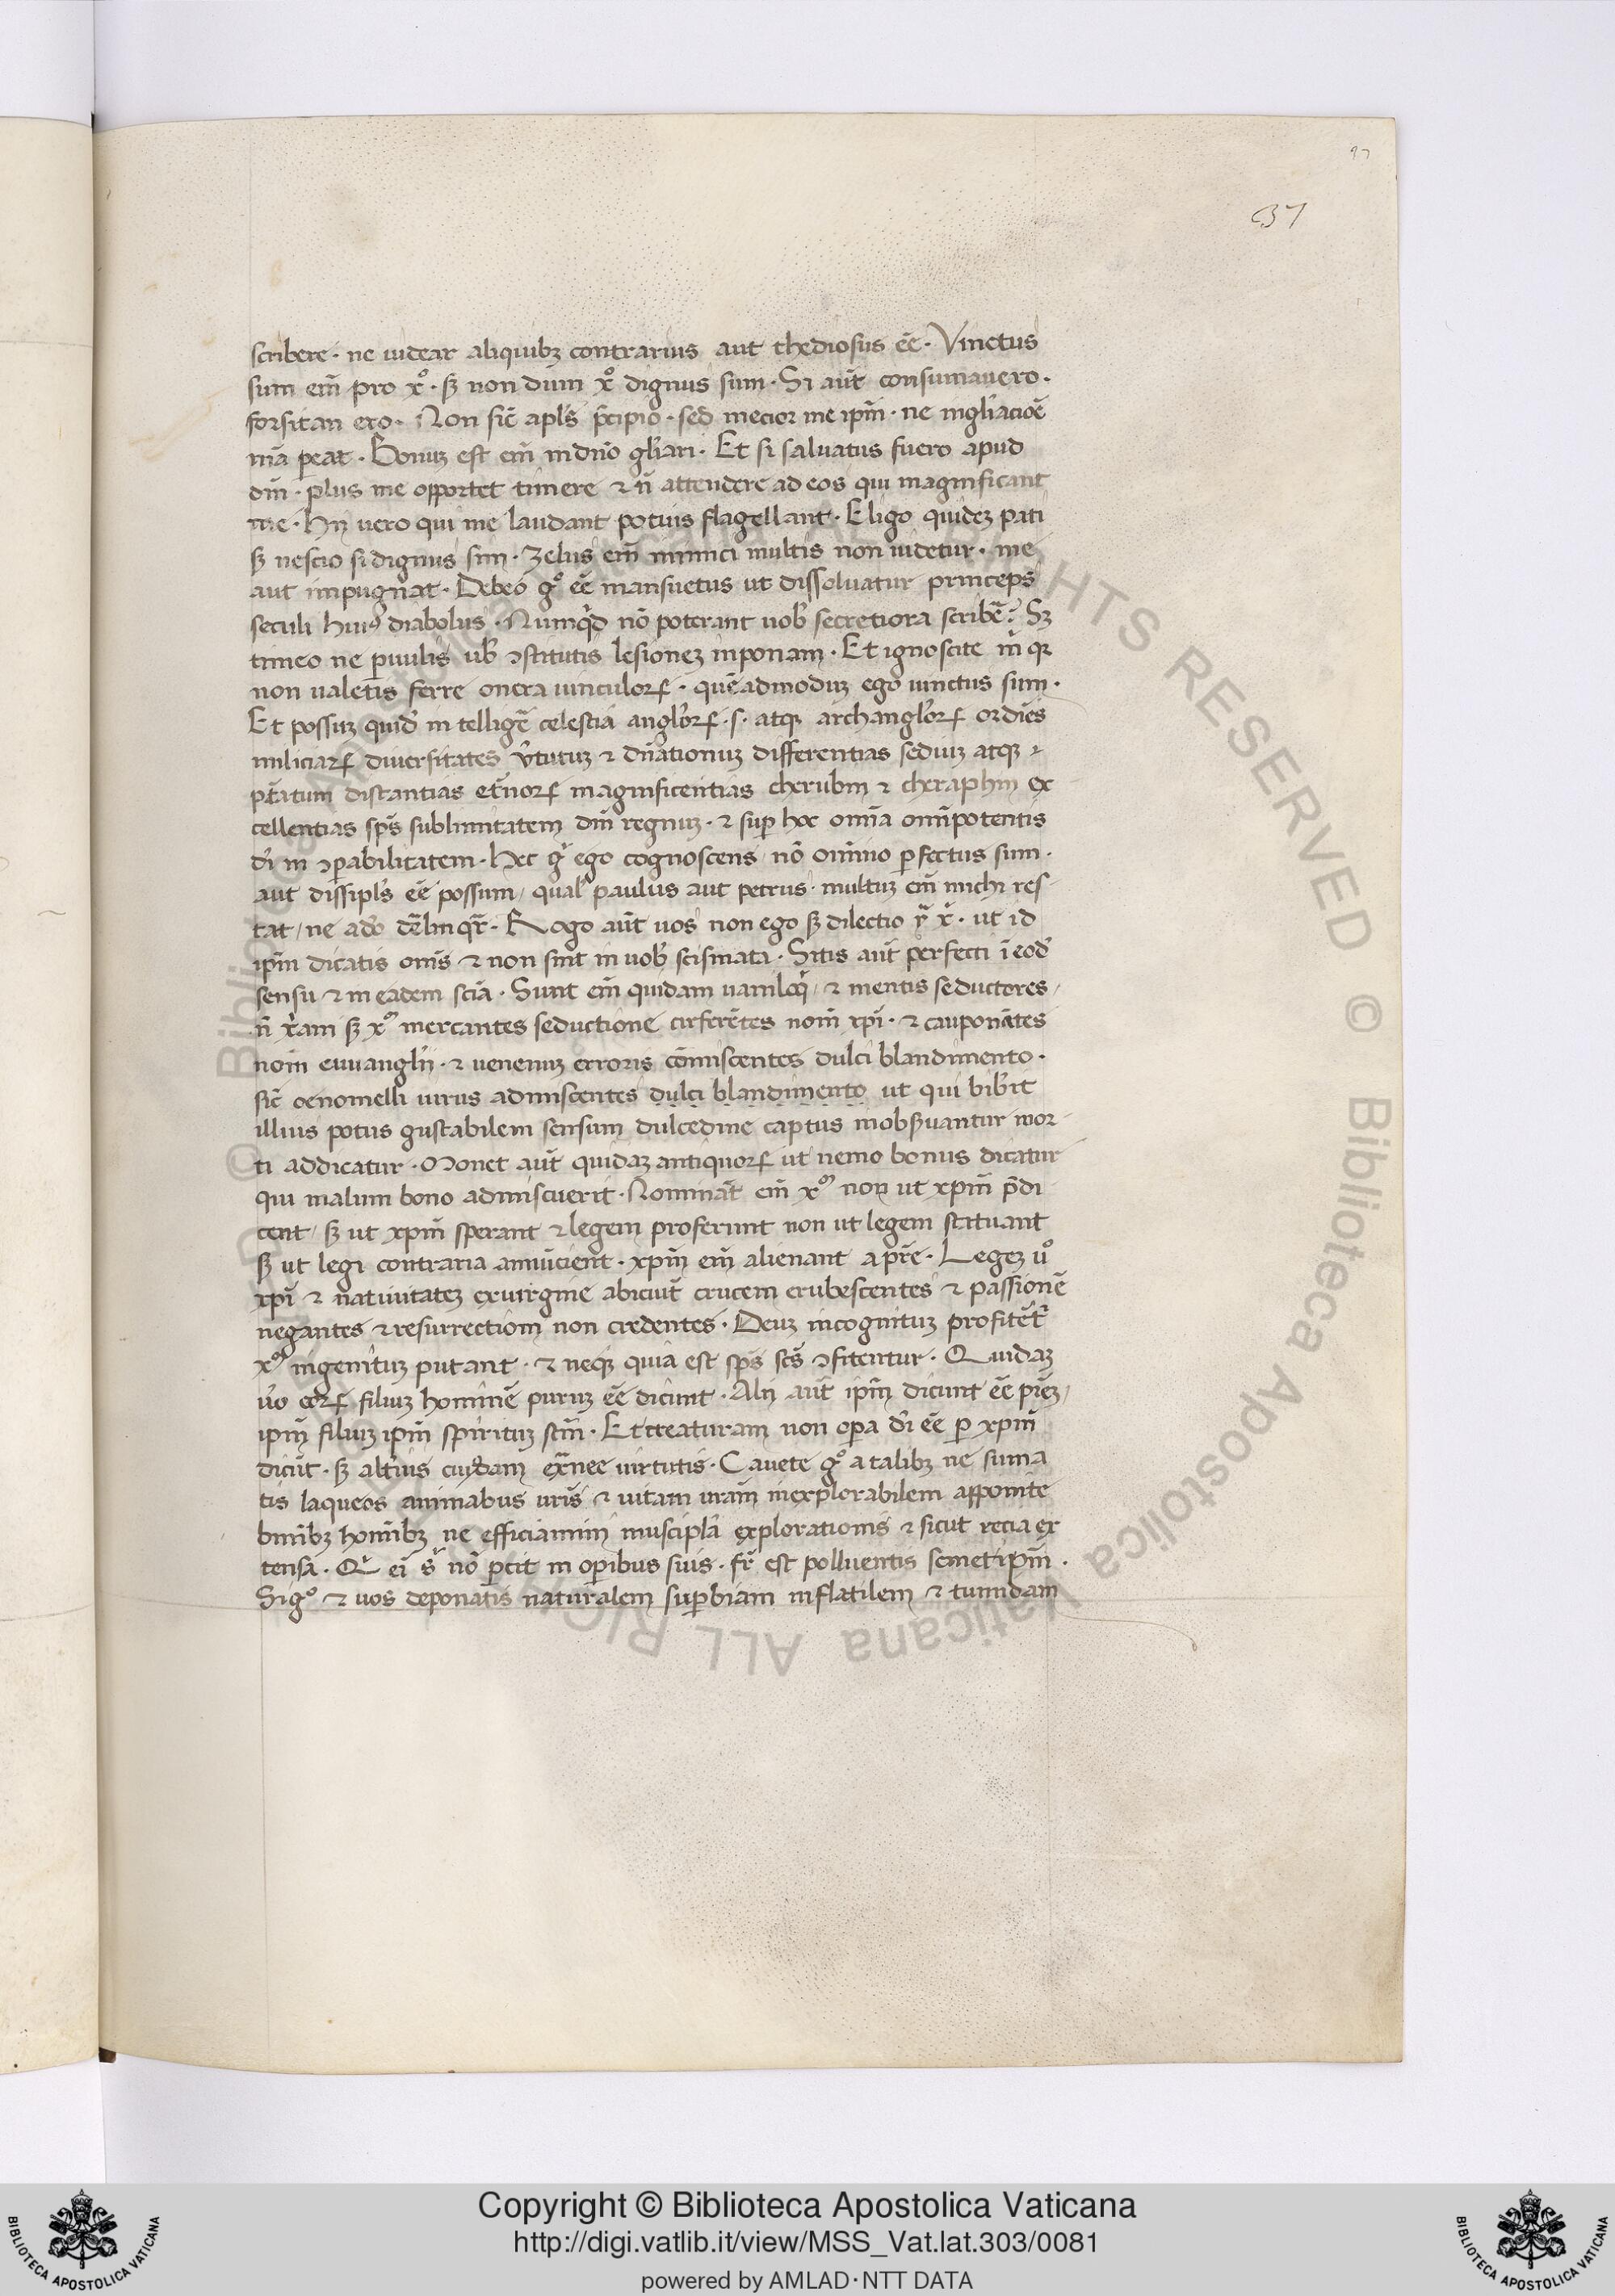 97
37
scribere · ne uidear aliquibꝫ contrarius aut thediosus ēe · Vinctus
sum em̄ pro xo᷎ · sꝫ non dum xo᷎ dignus sum · Si aūt consumauero ·
forsitan ero · Non sic̄ apl̄s p̄cipio · sed mecior me ipm̄ · ne in gl̄iacioē
mīa ꝑeat · Bonuꝫ est em̄ in dn̄o gl̄iari · Et si saluatus fuero apud
dm̄ · plus me opportet timere ⁊ n̄ attendere ad eos qui magnificant
me · Hij uero qui me laudant potius flagellant · Eligo quideꝫ pati
sꝫ nescio si dignus sim · Zelus em̄ inimici multis non uidetur · me
aut impugnat · Debeo gͦ ēe mansuetus ut dissoluatur princeps
seculi huiꝰ diabolus · Nunqͥd nō poterant uob̄ secretiora scribē? Sꝫ
timeo ne ꝑuulis ub̄ ꝯstitutis lesioneꝫ inponam · Et ignoscite m̄ qꝛ
non ualetis ferre onera uinculoꝝ · quēadmoduꝫ ego uinctus sum ·
Et possuꝫ quid̄ in telligē celestia angl̄oꝝ · s · atqꝫ archangl̄oꝝ ordiēs
miliciaꝝ diuersitates v̄tutuꝫ ⁊ dn̄ationuꝫ differentias sediuꝫ atqꝫ ⁊
ptātum distantias et̄noꝝ magnificentias cherubin ⁊ cheraphin ex
cellentias sp̄s sublimitatem dm̄ regnuꝫ · ⁊ suꝑ hoc omīa om̄ipotentis
dī in ꝯꝑabilitatem · Hec gͥ ego cognoscens nō om̄ino ꝑfectus sum ·
aut dissipl̄s ēe possum / qual̄ paulus aut petrus · multuꝫ em̄ michi res
tat / ne a do dēlinqr̄ · Rogo aūt uos non ego sꝫ dilectio yͥ xͥ · ut id
ipm̄ dicatis om̄s ⁊ non sint in uob̄ scismata · Sitis aūt perfecti ī eod̄
sensu ⁊ in eadem scīa · Sunt em̄ quidam uaniloqͥ / ⁊ mentis seductores /
n̄ xͥam sꝫ xm̄ mercantes seductione circferētes nom̄ xp̄i · ⁊ cauponātes
nom̄ euuangl̄ij · ⁊ uenenuꝫ erroris cōmiscentes dulci blandimento ·
sic̄ oenomelli uirus admiscentes dulci blandimento ut qui bib̄it
illius potus gustabilem sensum dulcedine captus inobs̄uantur mor
ti addicatur · Monet aūt quidaꝫ antiquoꝝ ut nemo bonus dicatur
qui malum bono admiscuerit · Nomināt em̄ xm̄ non ut xpm̄ p̄di
cent / sꝫ ut xpm̄ sperant ⁊ legem proferunt non ut legem statuant
sꝫ ut legi contraria annūcient · xpm̄ em̄ alienant a pr̄e · Legeꝫ uͦ
xp̄i ⁊ natiuitateꝫ ex uirgine abiciūt crucem erubescentes ⁊ passionē
negantes ⁊ resurrectiom̄ non credentes · Deuꝫ incognituꝫ profitēt᷑
xm̄ ingenituꝫ putant · ⁊ neqꝫ quia est sp̄s sc̄s ꝯfitentur · Quidaꝫ
ūo eoꝝ filiuꝫ hominē puruꝫ ēe dicunt · Alij aūt ipm̄ dicunt ēe pr̄eꝫ /
ipm̄ filiuꝫ ipm̄ spirituꝫ sc̄m · Et creaturam non oꝑa dī ēe ꝑ xpm̄
dicūt · sꝫ alt̄ius cuiꝰdam ex̄nee uirtutis · Cauete gͦ a talibꝫ ne suma
tis laqueos animabus ur̄is ⁊ uitam ur̄am inexplorabilem apponite
om̄ibꝫ hom̄ibꝫ ne efficiamini muscipl̄a explorationis ⁊ sicut recia ex
tensa · Qͥ eī sͥ nō ꝑcit in oꝑibus suis · fr̄ est polluentis semetipm̄ ·
Si gͦ ⁊ uos deponatis naturalem suꝑbiam inflatilem ⁊ tumidam
Copyright © Biblioteca Apostolica Vaticana
http://digi.vatlib.it/view/MSS_Vat.lat.303/0081
powered by AMLAD·NTT DATA
BIBLIOTECA APOSTOLICA VATICANA
BIBLIOTECA APOSTOLICA VATICANA